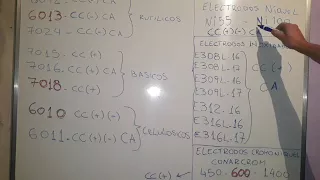 6013 - CC(+) CA
RUTILICOS
7024 - CC(+)(-) CA
7015 - CC(+)
7016 - CC(+)
BASICOS
7018 - CC(+)
6010 CC(+)(-)
CELULOSICOS
6011 - CC(+)(-) CA
ELECTRODOS NIQUEL
Ni 55 Ni 100
CC(+)(-) CA
ELECTRODOS
E308L-16
CC(+)
E309L-16
CA
E316L-16
E312-16
E316L-16
E316L-17
ELECTRODOS
CONARCROM
450-600-1400
CC(+)